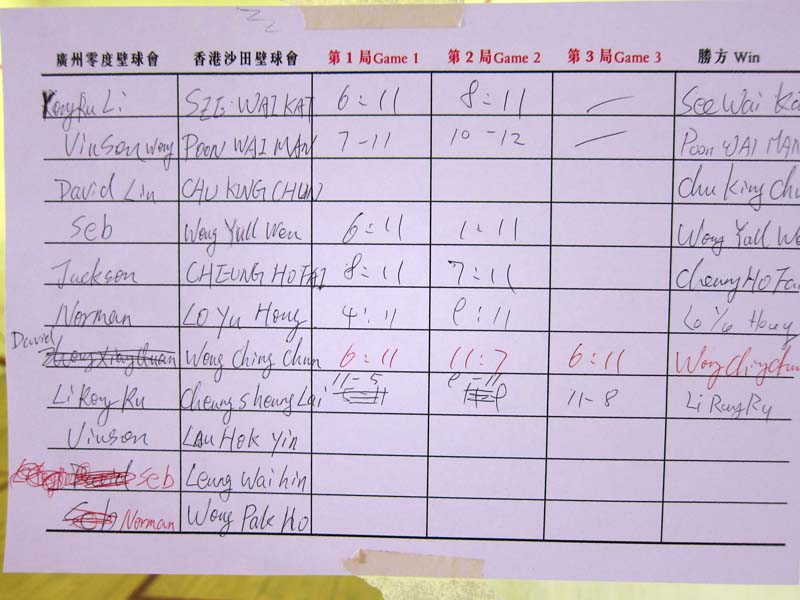 廣州零度壁球會 香港沙田壁球會 第1局Game 1 第2局Game 2 第3局Game 3 勝方 Win
Li SZE WAI KAT 6:11 8:11 See Wai Ka
Vinson Wong POON WAI MAN 7-11 10-12 Poon WAI MAN
David Lin CHU KING CHUN Chu King Chu
Seb Wong Yull Wen 6:11 1:11 Wong Yull We
Jackson CHEUNG HO FAI 8:11 7:11 Cheung Ho Fai
Norman LO Yu Hong 4:11 :11 Lo Yu Hong
David Wong Ching Chun 6:11 11:7 6:11 Wong Ching Chun
Li Rong Ru Cheung Sheung Lai 11-5 -11 11-8 Li Rong Ru
Vinson LAU HOK YIN
Seb Leung Wai hin
Norman Wong Pak Ho